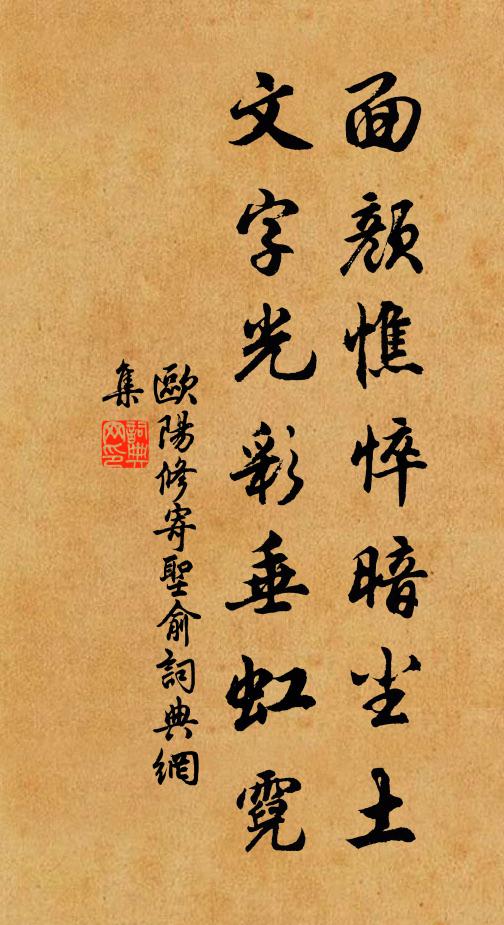 面顏憔悴暗尘土
文字光彩垂虹霓
歐陽修寄聖俞詞典網
集
詞典网印